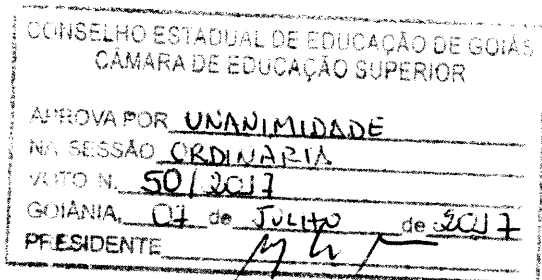 CONSELHO ESTADUAL DE EDUCAÇÃO DE GOIÁS
CÂMARA DE EDUCAÇÃO SUPERIOR
APROVA POR UNANIMIDADE
NA SESSÃO ORDINÁRIA
VOTO N. 50/2017
GOIÂNIA, 07 de JULHO de 2017
PRESIDENTE